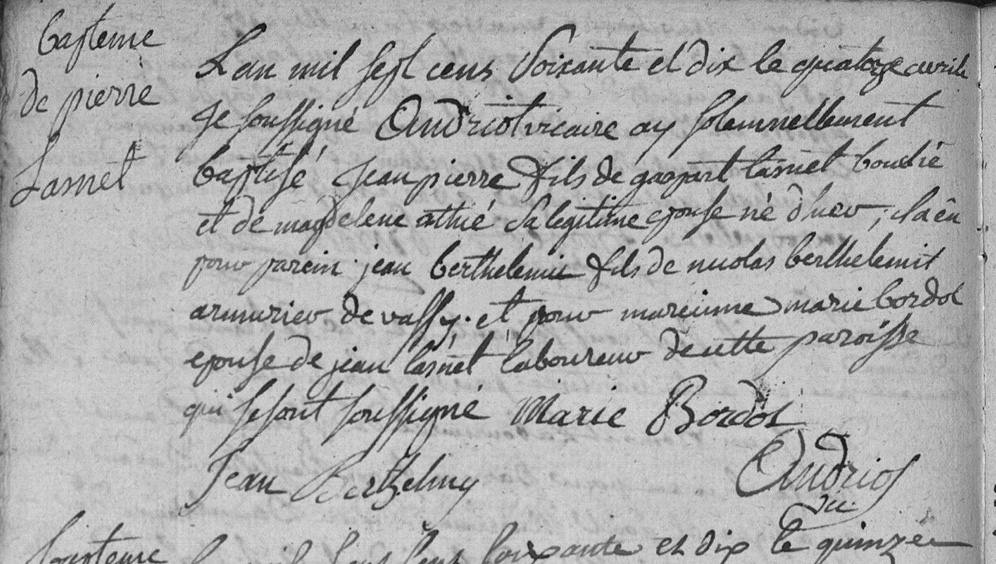 bapteme
de pierre
Lasnet
L'an mil sept cens soixante et dix le quatorze avril
Je soussigné Andriot vicaire ay solemnellement
baptisé jean pierre fils de gaspart lasnet
et de magdelene sa legitime epouse né d'hier, il a eu
pour parein jean berthelemie fils de nicolas berthelemit
armurier de vassy. et pour mareinne marie bordot
epouse de jean lasnet laboureur de cette paroisse
qui se sont soussigné Marie Bordot
Jean Berthelmy Andriot
vic
bapteme L'an mil sept cens soixante et dix le quinze